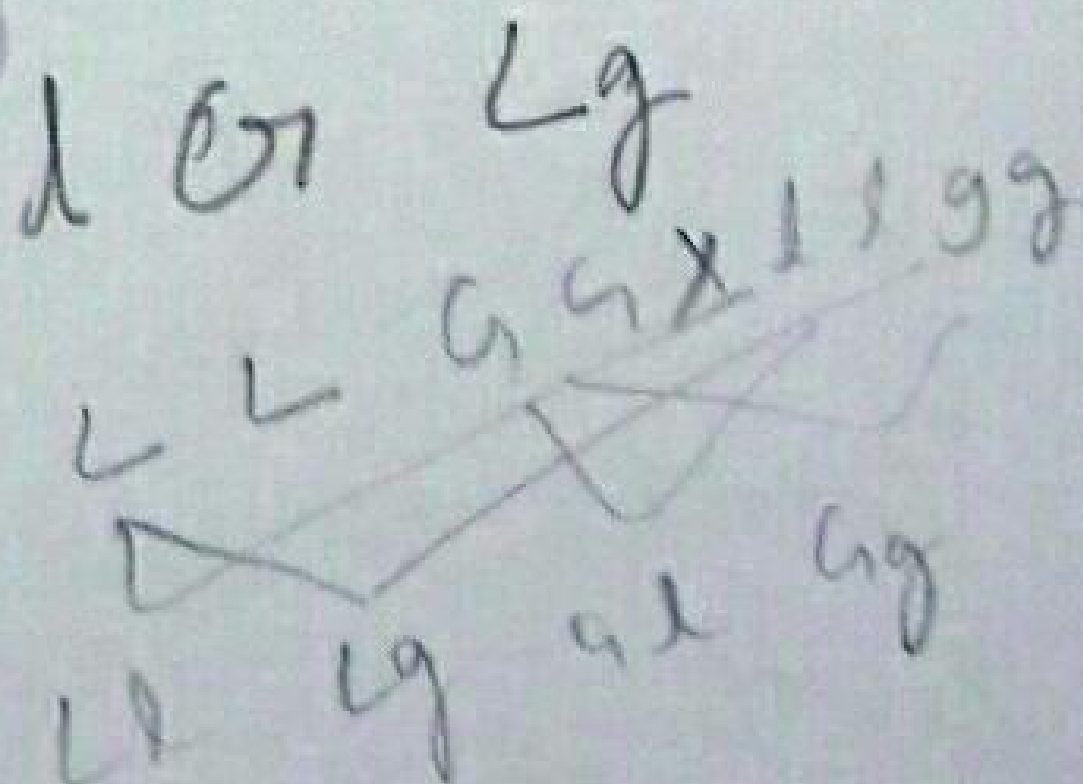 l G Lg
L L G G X l l g g
Ll Lg Gl Gg